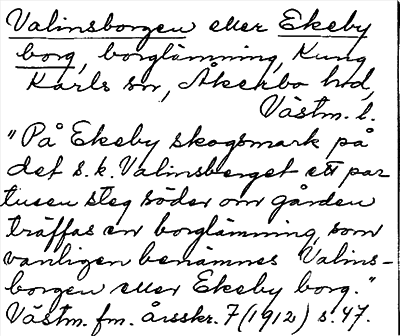 Valinsborgen eller Ekeby
borg, borglämning, Kung
Karls sn, Åkerbo hd,
Västm. l.
"På Ekeby skogsmark på
det s.k. Valinsberget ett par
tusen steg söder om gården
träffas en borglämning, som
vanligen benämnes Valins-
borgen eller Ekeby borg."
Västm. fm. årsskr. 7 (1912) s. 47.